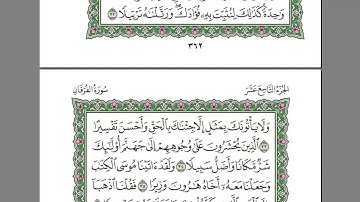 وَٰحِدَةً كَذَٰلِكَ لِنُثَبِّتَ بِهِۦ فُؤَادَكَ وَرَتَّلْنَٰهُ تَرْتِيلًا ٣٢
٣٦٢
الجزء التاسع عشر
سورة الفرقان
وَلَا يَأْتُونَكَ بِمَثَلٍ إِلَّا جِئْنَٰكَ بِٱلْحَقِّ وَأَحْسَنَ تَفْسِيرًا
٣٣ ٱلَّذِينَ يُحْشَرُونَ عَلَىٰ وُجُوهِهِمْ إِلَىٰ جَهَنَّمَ أُو۟لَٰٓئِكَ
شَرٌّ مَّكَانًا وَأَضَلُّ سَبِيلًا ٣٤ وَلَقَدْ ءَاتَيْنَا مُوسَى ٱلْكِتَٰبَ
وَجَعَلْنَا مَعَهُۥٓ أَخَاهُ هَٰرُونَ وَزِيرًا ٣٥ فَقُلْنَا ٱذْهَبَآ